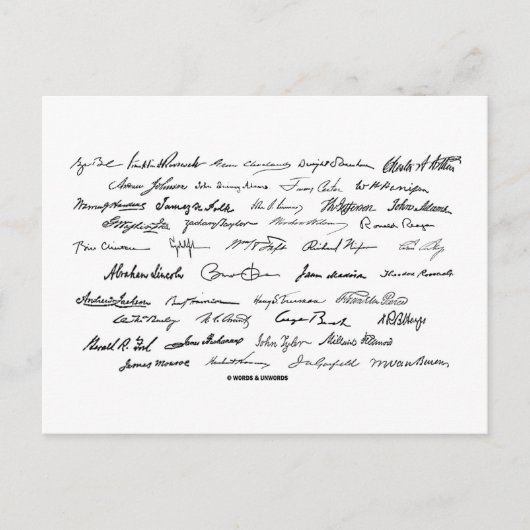 Franklin D Roosevelt Grover Cleveland Dwight D Eisenhower Chester A Arthur
Andrew Johnson John Quincy Adams Jimmy Carter W H Harrison
Warren G Harding James K. Polk Th Jefferson John Adams
G Washington Zachary Taylor Woodrow Wilson Ronald Reagan
Bill Clinton Wm H Taft Richard Nixon
Abraham Lincoln James Madison Theodore Roosevelt
Andrew Jackson Benj Harrison Harry S Truman Franklin Pierce
U. S. Grant George Bush R B Hayes
Gerald R. Ford James Buchanan John Tyler Millard Fillmore
James Monroe Herbert Hoover J A Garfield M Van Buren
© WORDS & UNWORDS